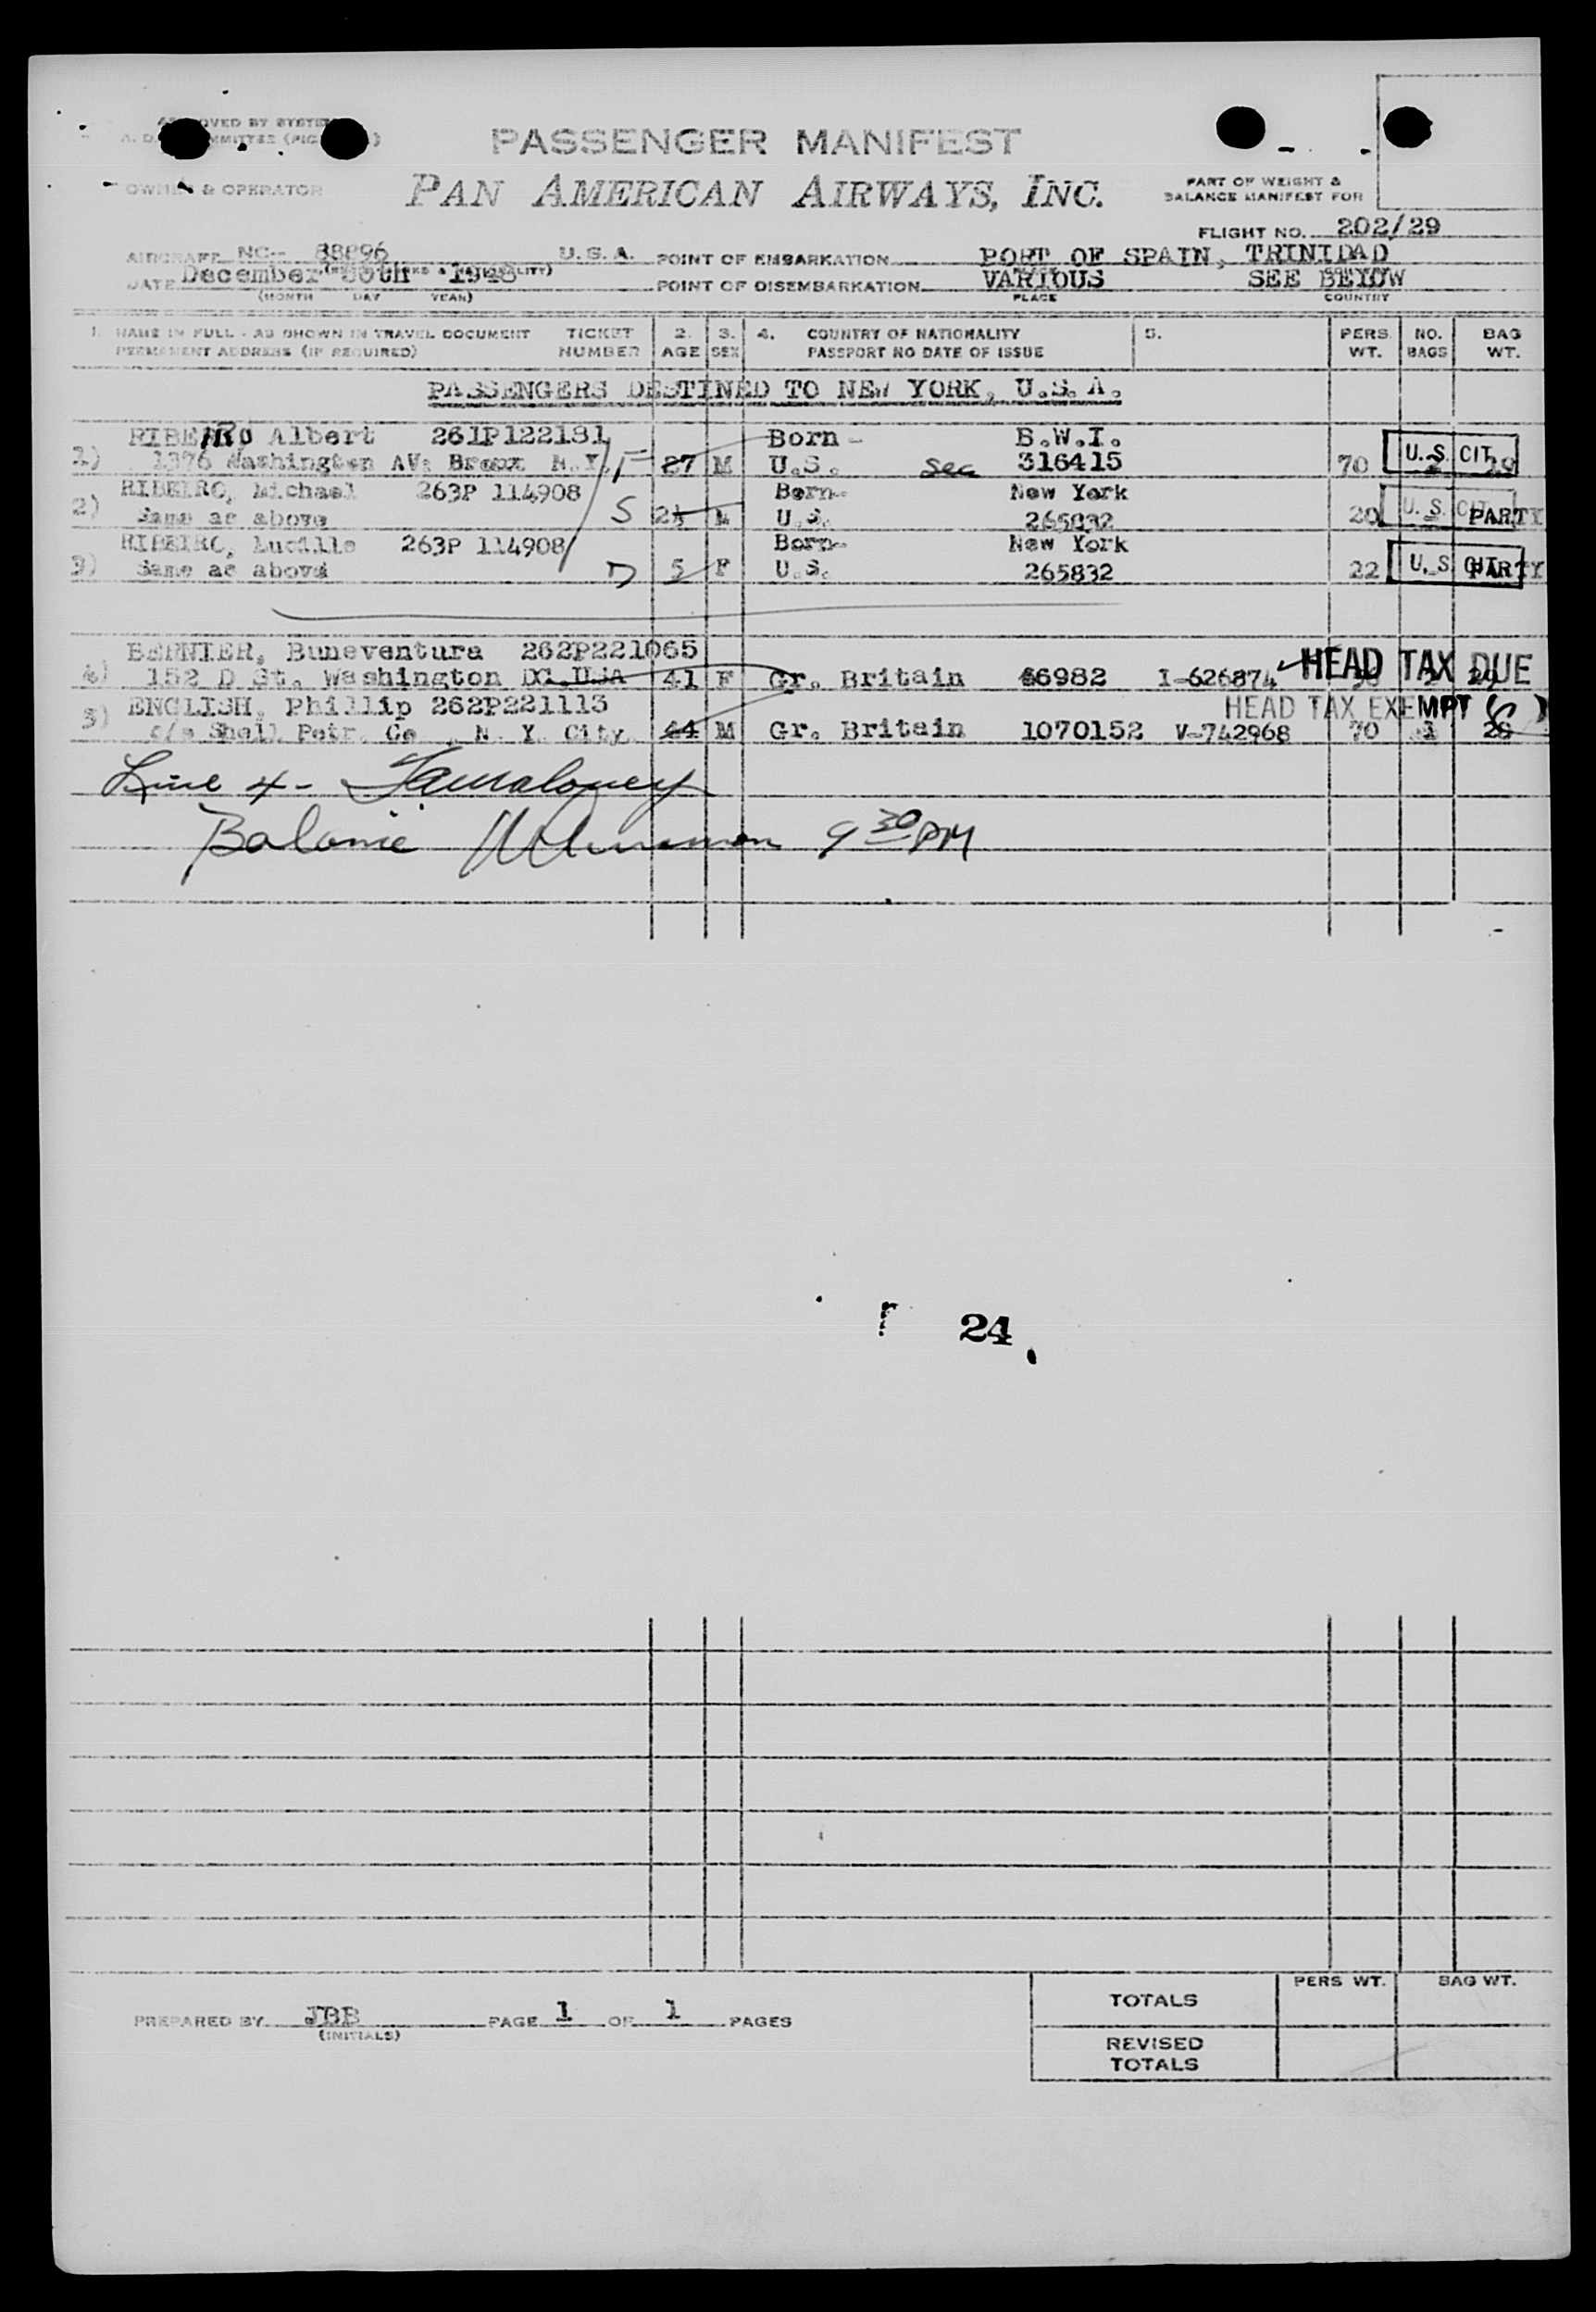 PASSENGER MANIFEST
OWNER & OPERATOR
PAN AMERICAN AIRWAYS, INC.
PART OF WEIGHT &
BALANCE MANIFEST FOR
FLIGHT NO. 202/29
AIRCRAFT NC-- 88896 U.S.A. POINT OF EMBARKATION PORT OF SPAIN, TRINIDAD
DATE December 30th 1948 POINT OF DISEMBARKATION VARIOUS SEE BELOW
(MONTH DAY YEAR) PLACE COUNTRY
1. NAME IN FULL - AS SHOWN IN TRAVEL DOCUMENT TICKET 2. 3. 4. COUNTRY OF NATIONALITY 5. PERS. NO. BAG
PERMANENT ADDRESS (IF REQUIRED) NUMBER AGE SEX PASSPORT NO DATE OF ISSUE WT. BAGS WT.
PASSENGERS DESTINED TO NEW YORK, U.S.A.
RIBEIRO Albert 261P122181 Born - B.W.I.
1) 1376 Washington AV: Bronx N.Y. F 27 M U.S. Sec 316415 70 U.S. CIT.
RIBEIRO, Michael 263P 114908 Born-- New York
2) Same as above S 2½ M U.S. 265832 20 U.S. CIT. PARTY
RIBEIRO, Lucille 263P 114908 Born-- New York
3) Same as above D 5 F U.S. 265832 22 U.S. CIT. PARTY
BERNIER, Buneventura 262P221065
4) 152 D St. Washington DC.USA 41 F Gr. Britain 66982 I-626874 HEAD TAX DUE
ENGLISH, Phillip 262P221113 HEAD TAX EXEMPT
5) c/o Shell Petr. Co., N. Y. City 44 M Gr. Britain 1070152 V-742968 70 1 28
Line 4 -
Balance 9 30 PM
24
PERS WT. BAG WT.
TOTALS
PREPARED BY JBB PAGE 1 OF 1 PAGES
(INITIALS)
REVISED
TOTALS